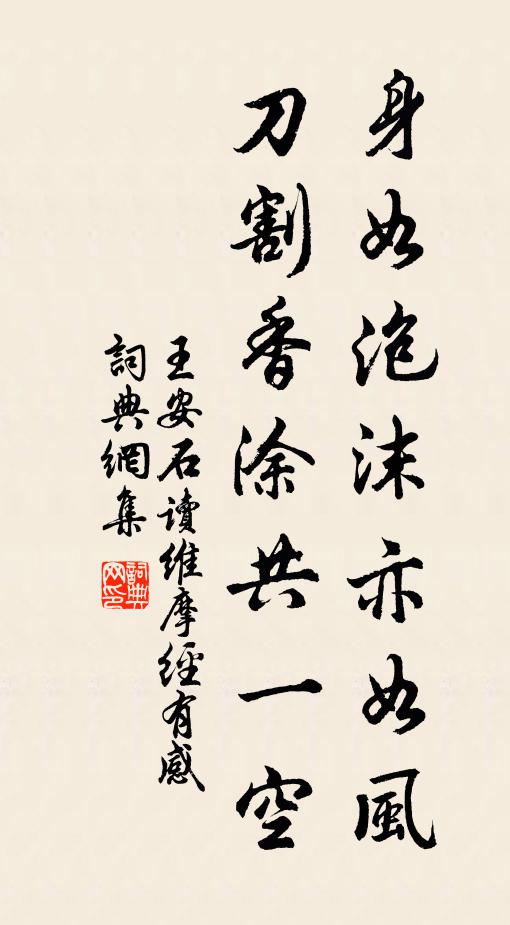 身如泡沫亦如風
刀割香涂共一空
王安石讀維摩經有感
詞典網集
詞典
网印